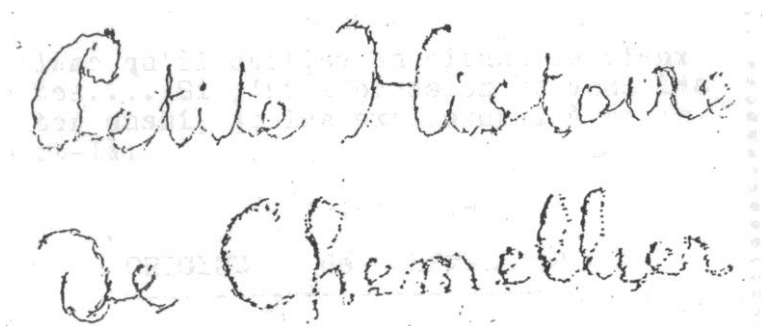 Petite Histoire
De Chemellier